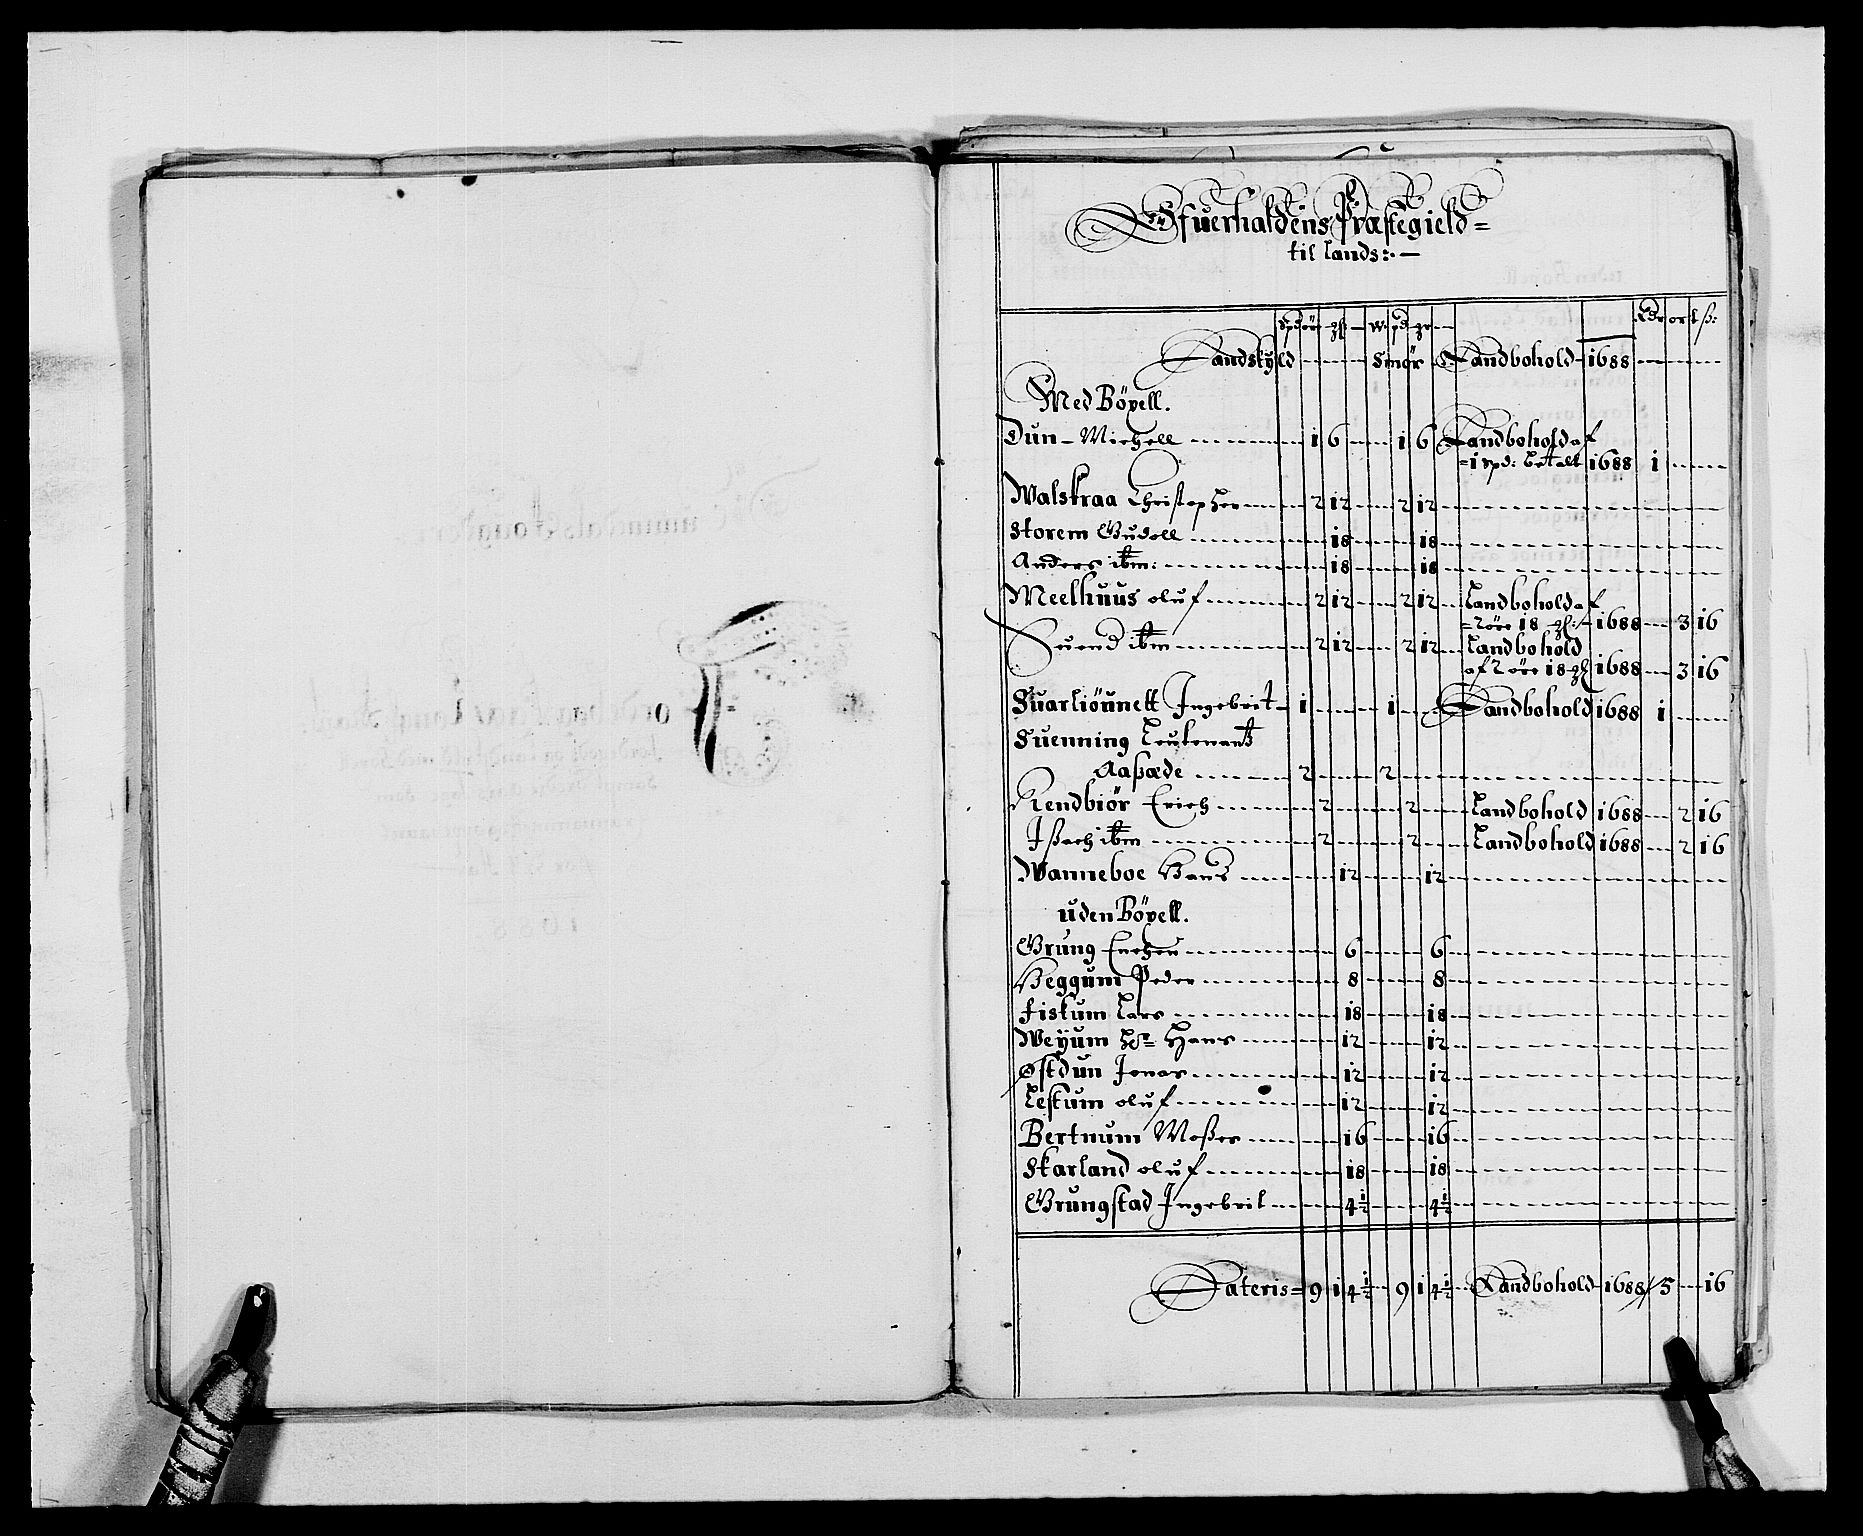 Ofuerhaldens Præstegield=
til Lands:·—
Spd öre gl: — w: pd gr — Rdr ort ß:
Landskyld Smör Landbohold 1688
Med Böxell.
Dun Michell 1 6 1 6 Landbohold af
=1 spd: betalt 1688 1
Walskraa Christopher 2 12 2 12
Storem Gudoll 18 18
Anders ibm: 18 18
Meelhuus oluf 2 12 2 12 Landbohold af
=2 öre 18 gl: 1688 3 16
Suend ibm 2 12 2 12 Landbohold
af 2 öre 18 gl 1688 3 16
Suarliöunett Ingebrit 1 1 Landbohold 1688 1
Suenning Leutenant
Aaßæde 2 2
Rendbiör Erich 2 2 Landbohold 1688 2 16
Ißach ibm 2 2 Landbohold 1688 2 16
Wanneboe Hans 12 12
uden Böxell.
Grung Enchen 6 6
Heggum Peder 8 8
fiskum Lars 18 18
Weyum Hr= Hans 12 12
Østdun Jonas 12 12
Leskum oluf 12 12
Bertnum Moßes 16 16
Skarland oluf 18 18
Grungstad Ingebrit 4½ 4½
Lateris= 9 1 4½ 9 1 4½ Landbohold 1688 / 5 16